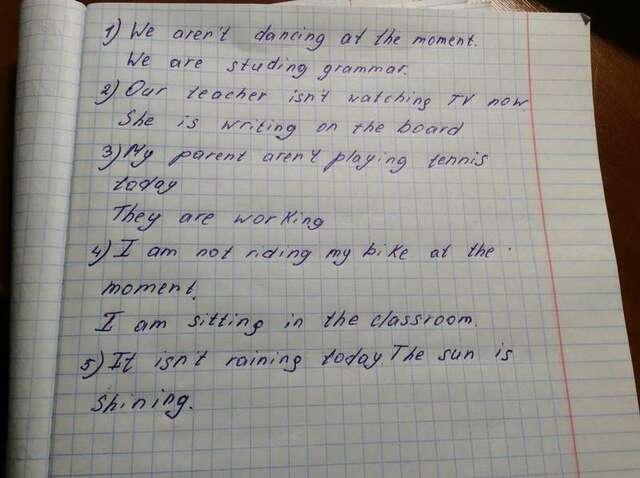 1) We aren't dancing at the moment.
We are studing grammar.
2) Our teacher isn't watching TV now
She is writing on the board
3) My parent aren't playing tennis
today
They are working
4) I am not riding my bike at the
moment.
I am sitting in the classroom.
5) It isn't raining today. The sun is
shining.